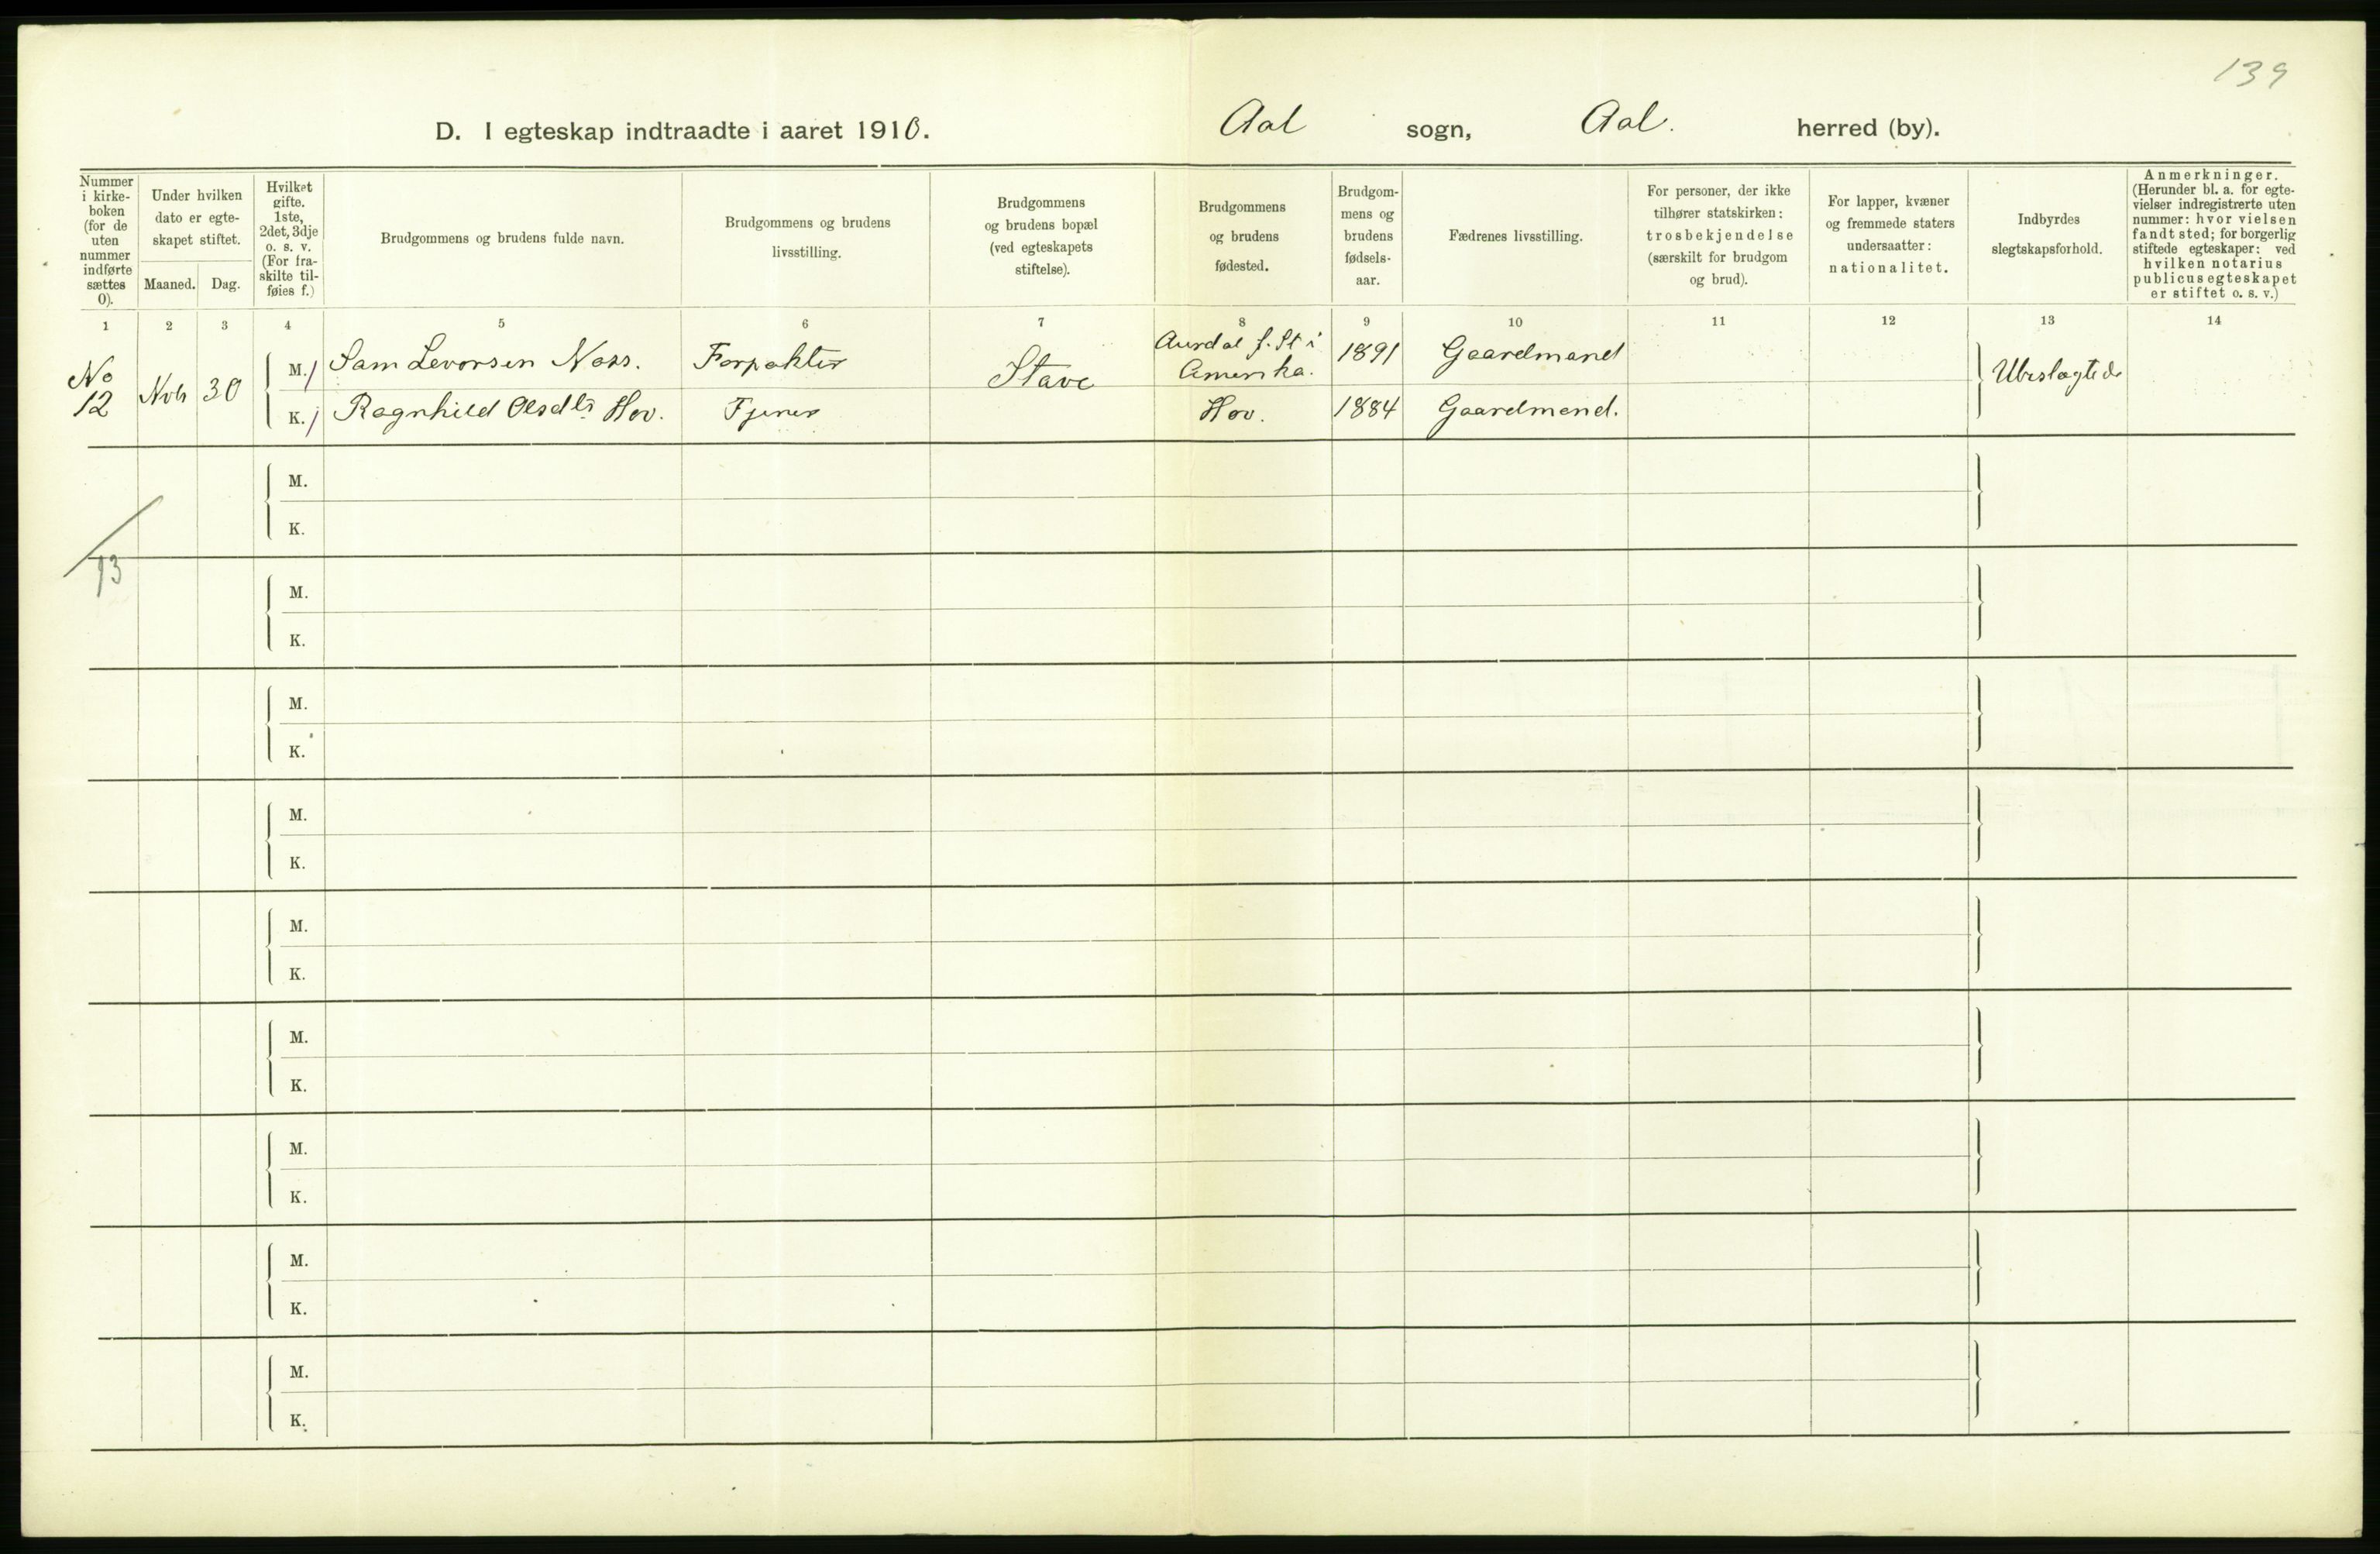 139
D. I egteskap indtraadte i aaret 1910. Aal sogn, Aal. herred (by).
Nummer
i kirke-
boken
(for de
uten
nummer
indførte
sættes
0).
Under hvilken
dato er egte-
skapet stiftet.
Maaned. Dag.
Hvilket
gifte.
1ste,
2det, 3dje
o. s. v.
(For fra-
skilte til-
føies f.)
Brudgommens og brudens fulde navn.
Brudgommens og brudens
livsstilling.
Brudgommens
og brudens bopæl
(ved egteskapets
stiftelse).
Brudgommens
og brudens
fødested.
Brudgom-
mens og
brudens
fødsels-
aar.
Fædrenes livsstilling.
For personer, der ikke
tilhører statskirken:
trosbekjendelse
(særskilt for brudgom
og brud).
For lapper, kvæner
og fremmede staters
undersaatter:
nationalitet.
Indbyrdes
slegtskapsforhold.
Anmerkninger.
(Herunder bl. a. for egte-
vielser indregistrerte uten
nummer: hvor vielsen
fandt sted; for borgerlig
stiftede egteskaper: ved
hvilken notarius
publicus egteskapet
er stiftet o. s. v.)
1 2 3 4 5 6 7 8 9 10 11 12 13 14
No
12
Nvb 30
M. 1 Sam Levorsen Noss. Forpakter Stave Aurdal f. St i
Amerika. 1891 Gaardmand Ubeslægtede
K. 1 Ragnhild Olsdtr Hov. Tjener Hov. 1884 Gaardmand.
M.
K.
13
M.
K.
M.
K.
M.
K.
M.
K.
M.
K.
M.
K.
M.
K.
M.
K.